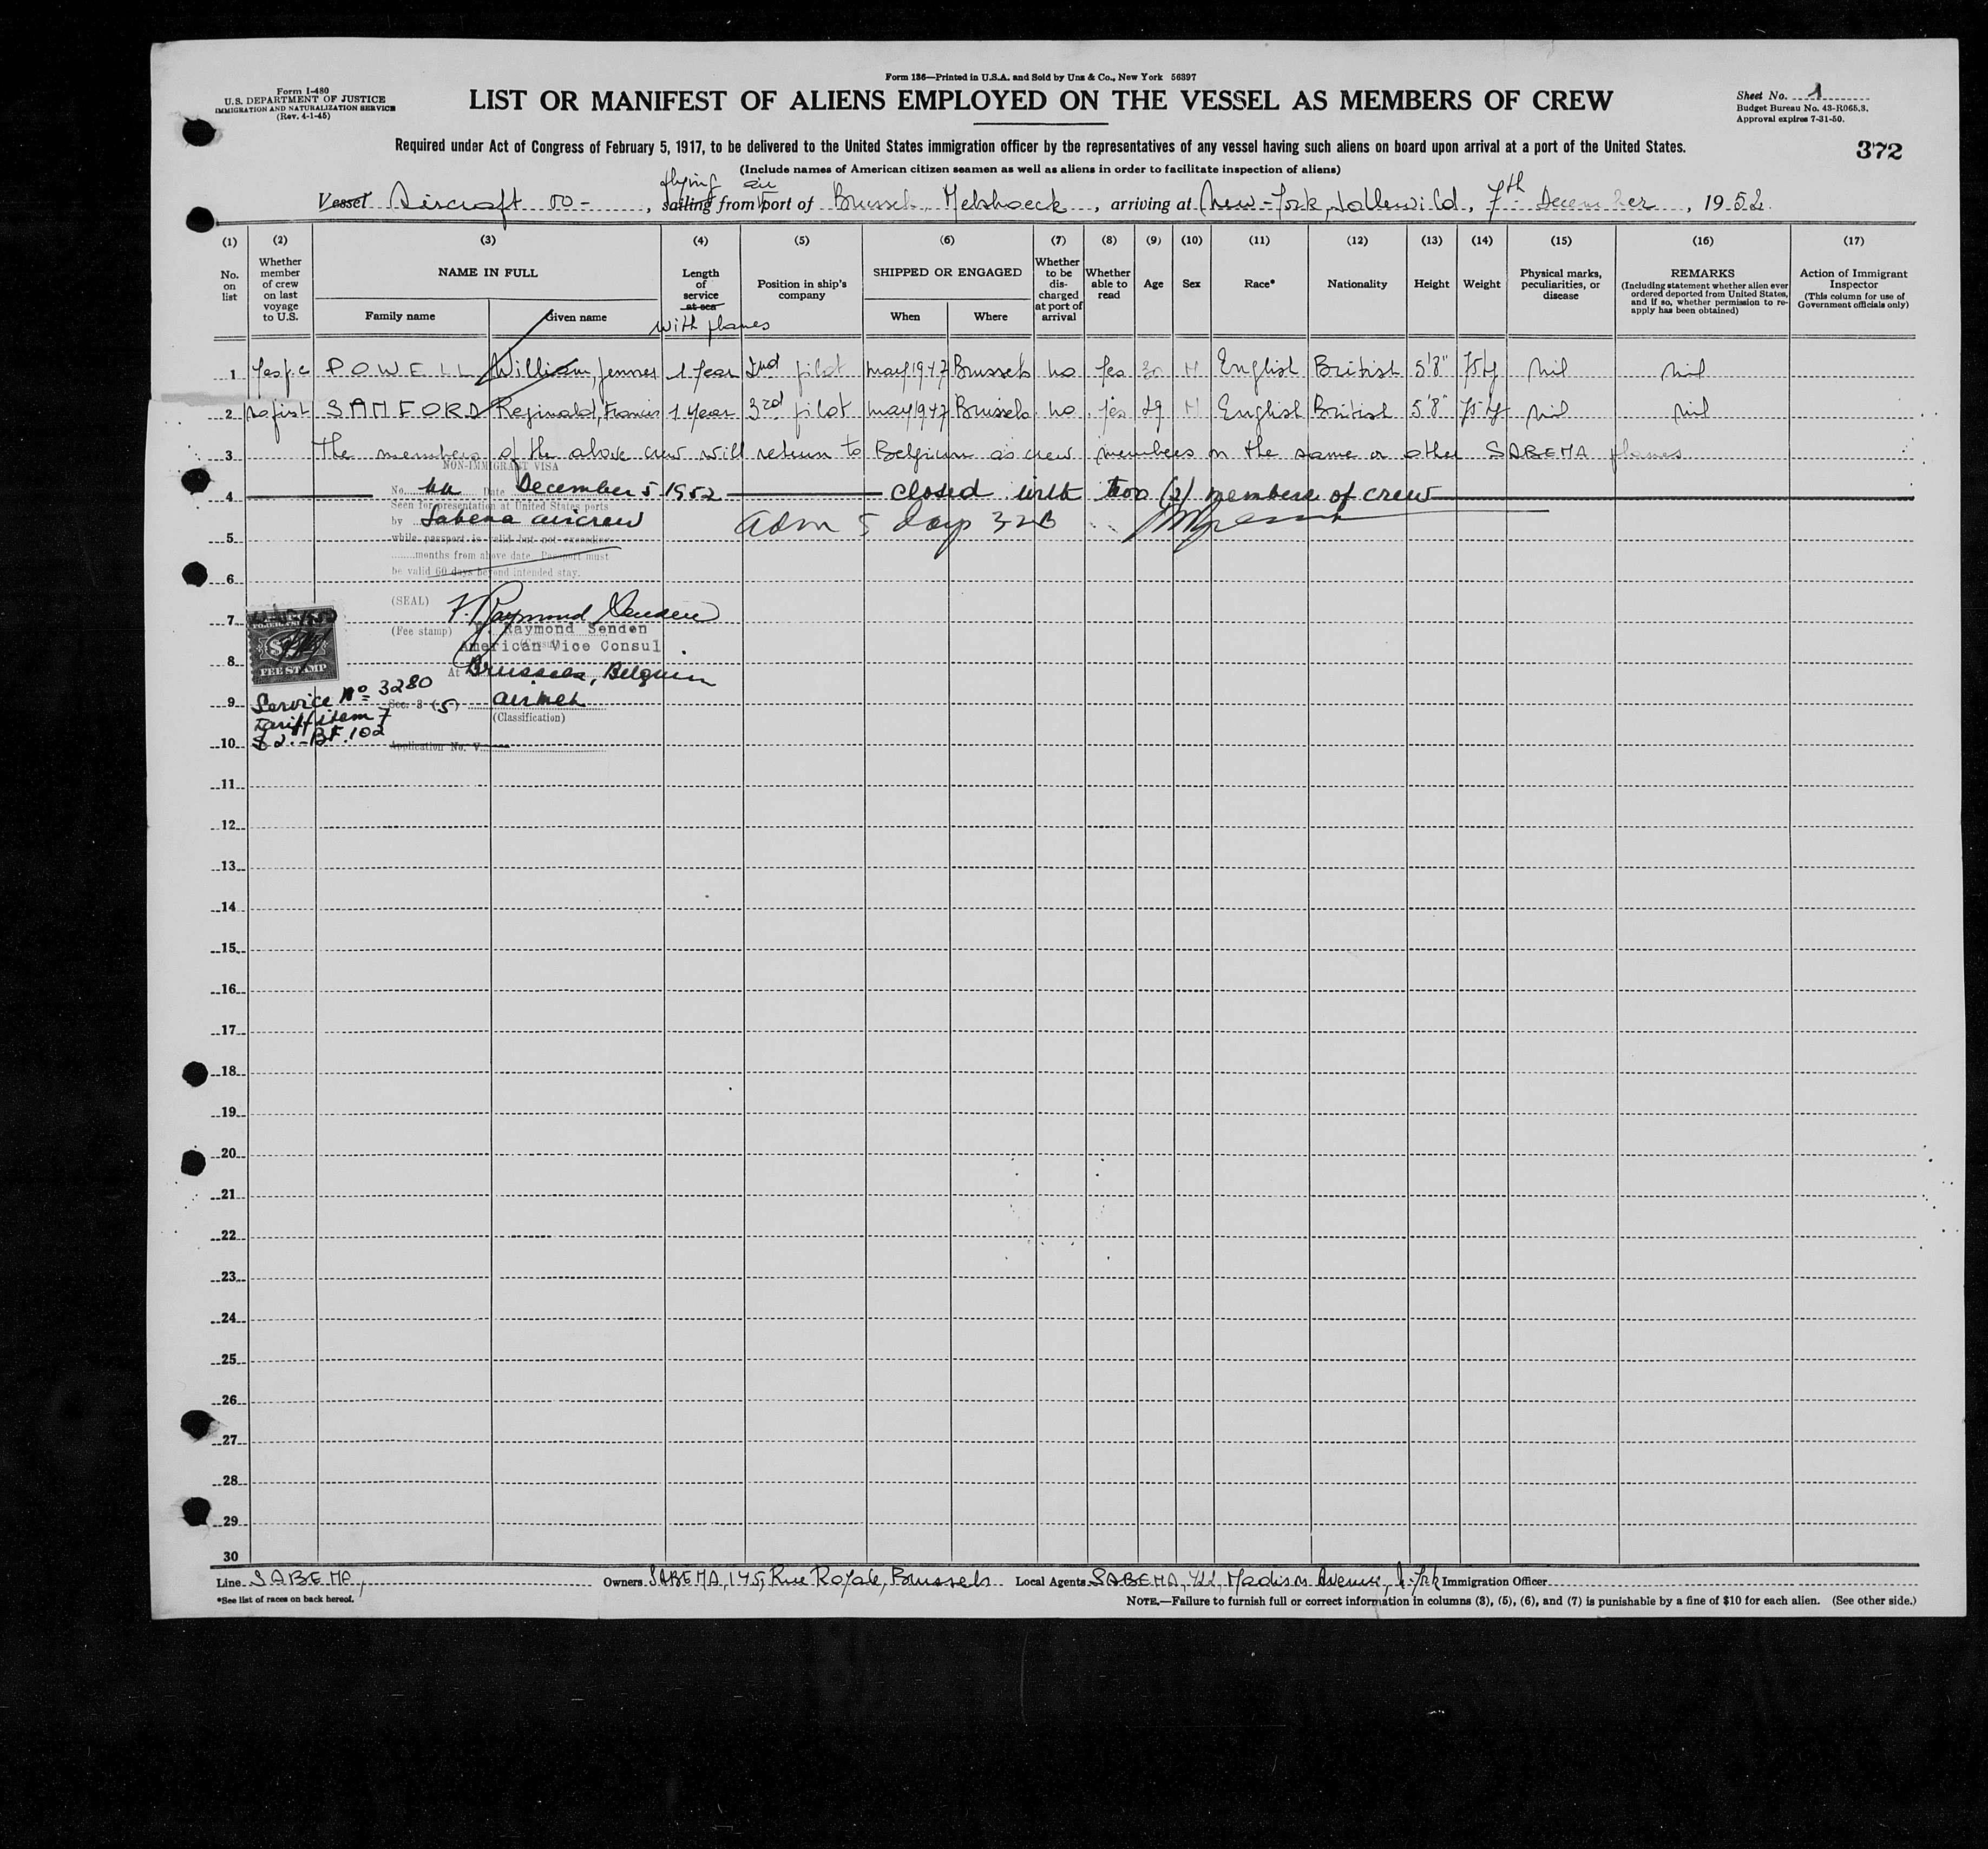 Form 136—Printed in U.S.A. and Sold by Unz & Co., New York 56397
Form I-480
U.S. DEPARTMENT OF JUSTICE
IMMIGRATION AND NATURALIZATION SERVICE
(Rev. 4-1-45)
LIST OR MANIFEST OF ALIENS EMPLOYED ON THE VESSEL AS MEMBERS OF CREW
Sheet No. 1
Budget Bureau No. 43-R065.3.
Approval expires 7-31-50.
Required under Act of Congress of February 5, 1917, to be delivered to the United States immigration officer by the representatives of any vessel having such aliens on board upon arrival at a port of the United States.
372
(Include names of American citizen seamen as well as aliens in order to facilitate inspection of aliens)
flying air
Vessel Aircraft OO- , sailing from port of Brussels, Melsbroeck, arriving at New-York, Idlewild, 7th December, 1952.
(1) (2) (3) (4) (5) (6) (7) (8) (9) (10) (11) (12) (13) (14) (15) (16) (17)
No. on list
Whether member of crew on last voyage to U.S.
NAME IN FULL
Family name
Given name
Length of service at sea
with planes
Position in ship's company
SHIPPED OR ENGAGED
When
Where
Whether to be discharged at port of arrival
Whether able to read
Age
Sex
Race*
Nationality
Height
Weight
Physical marks, peculiarities, or disease
REMARKS
(Including statement whether alien ever ordered deported from United States, and if so, whether permission to reapply has been obtained)
Action of Immigrant Inspector
(This column for use of Government officials only)
1 Yes POWELL William, 1 Year 2nd pilot May 1947 Brussels no Yes 30 M English British 5'8" nil nil
2 no first SAMFORD Reginald, Francis 1 Year 3rd pilot May 1947 Brussels no yes 29 M English British 5'8" nil nil
3 The members of the above crew will return to Belgium as crew members on the same or other SABENA planes
NON-IMMIGRANT VISA
4 No. Date December 5 1952 closed with two (2) members of crew
Seen for presentation at United States ports
by Sabena aircrew
Adm 5 days
5
while passport is valid but not exceeding
months from above date. Passport must
be valid 60 days beyond intended stay.
6
(SEAL)
7
(Fee stamp) Raymond Senden
American Vice Consul
8
FEE STAMP
At Brussels, Belgium
Service No 3280
9 Sec. 3 (5)
(Classification)
Tariff item 7
$2.- BF.102
10 Application No. V
11
12
13
14
15
16
17
18
19
20
21
22
23
24
25
26
27
28
29
30
Line SABENA, Owners SABENA, 145, Rue Royale, Brussels Local Agents SABENA, 422, Madison Avenue, N-York Immigration Officer
*See list of races on back hereof.
NOTE.—Failure to furnish full or correct information in columns (3), (5), (6), and (7) is punishable by a fine of $10 for each alien. (See other side.)